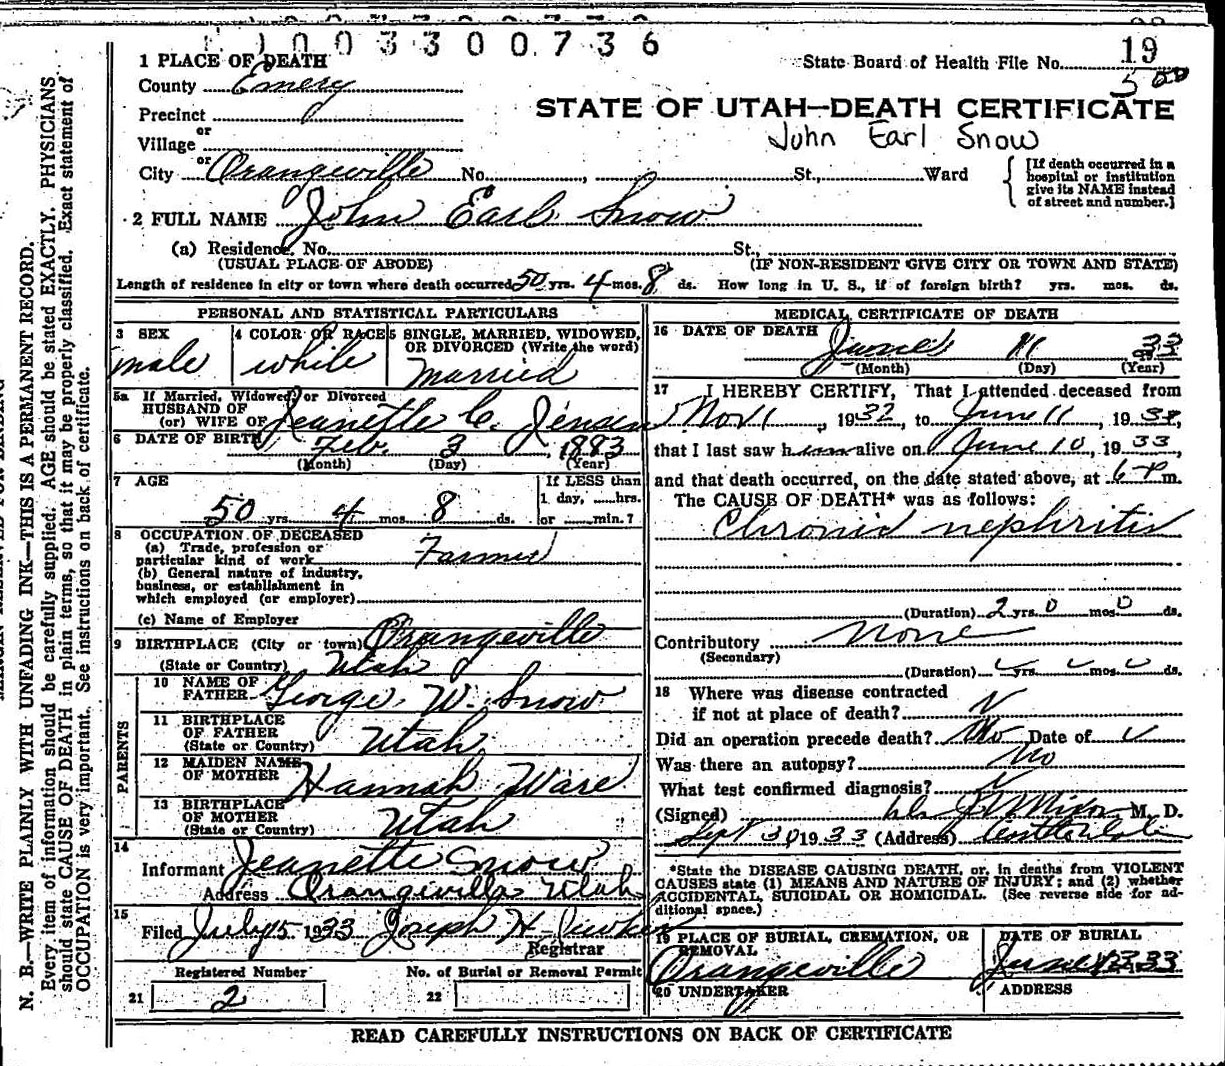 1003300736
1 PLACE OF DEATH
State Board of Health File No. 19
County Emery
500
Precinct
STATE OF UTAH—DEATH CERTIFICATE
or
John Earl Snow
Village
or
City Orangeville No. , St., Ward
[If death occurred in a hospital or institution give its NAME instead of street and number.]
2 FULL NAME John Earl Snow
(a) Residence, No. St.,
(USUAL PLACE OF ABODE) (IF NON-RESIDENT GIVE CITY OR TOWN AND STATE)
Length of residence in city or town where death occurred 50 yrs. 4 mos. 8 ds. How long in U. S., if of foreign birth? yrs. mos. ds.
PERSONAL AND STATISTICAL PARTICULARS
3 SEX
male
4 COLOR OR RACE
white
5 SINGLE, MARRIED, WIDOWED, OR DIVORCED (Write the word)
Married
5a If Married, Widowed, or Divorced
HUSBAND OF
(or) WIFE OF Jeanette C. Jensen
6 DATE OF BIRTH Feb. 3 1883
(Month) (Day) (Year)
7 AGE
50 yrs. 4 mos. 8 ds.
If LESS than
1 day, hrs.
or min.?
8 OCCUPATION OF DECEASED
(a) Trade, profession or
particular kind of work Farmer
(b) General nature of industry,
business, or establishment in
which employed (or employer)
(c) Name of Employer
9 BIRTHPLACE (City or town) Orangeville
(State or Country) Utah
PARENTS
10 NAME OF
FATHER George W. Snow
11 BIRTHPLACE
OF FATHER
(State or Country) Utah
12 MAIDEN NAME
OF MOTHER Hannah Ware
13 BIRTHPLACE
OF MOTHER
(State or Country) Utah
14
Informant Jeanette Snow
Address Orangeville Utah
15
Filed July 5 1933 Joseph H
Registrar
Registered Number No. of Burial or Removal Permit
21 2 22
MEDICAL CERTIFICATE OF DEATH
16 DATE OF DEATH
June 11 33
(Month) (Day) (Year)
17 I HEREBY CERTIFY, That I attended deceased from
Nov 1, 1932, to June 11, 1933,
that I last saw him alive on June 10, 1933,
and that death occurred, on the date stated above, at 6 P m.
The CAUSE OF DEATH* was as follows:
Chronic nephritis
(Duration) 2 yrs. 0 mos. 0 ds.
Contributory None
(Secondary)
(Duration) yrs. mos. ds.
18 Where was disease contracted
if not at place of death?
Did an operation precede death? No Date of
Was there an autopsy? No
What test confirmed diagnosis?
(Signed) M. D.
Sept 30 1933 (Address)
*State the DISEASE CAUSING DEATH, or, in deaths from VIOLENT
CAUSES state (1) MEANS AND NATURE OF INJURY; and (2) whether
ACCIDENTAL, SUICIDAL OR HOMICIDAL. (See reverse side for ad-
ditional space.)
19 PLACE OF BURIAL, CREMATION, OR
REMOVAL
Orangeville
DATE OF BURIAL
June 13 33
20 UNDERTAKER
ADDRESS
READ CAREFULLY INSTRUCTIONS ON BACK OF CERTIFICATE
N. B.—WRITE PLAINLY WITH UNFADING INK—THIS IS A PERMANENT RECORD.
Every item of information should be carefully supplied. AGE should be stated EXACTLY. PHYSICIANS
should state CAUSE OF DEATH in plain terms, so that it may be properly classified. Exact statement of
OCCUPATION is very important. See instructions on back of certificate.